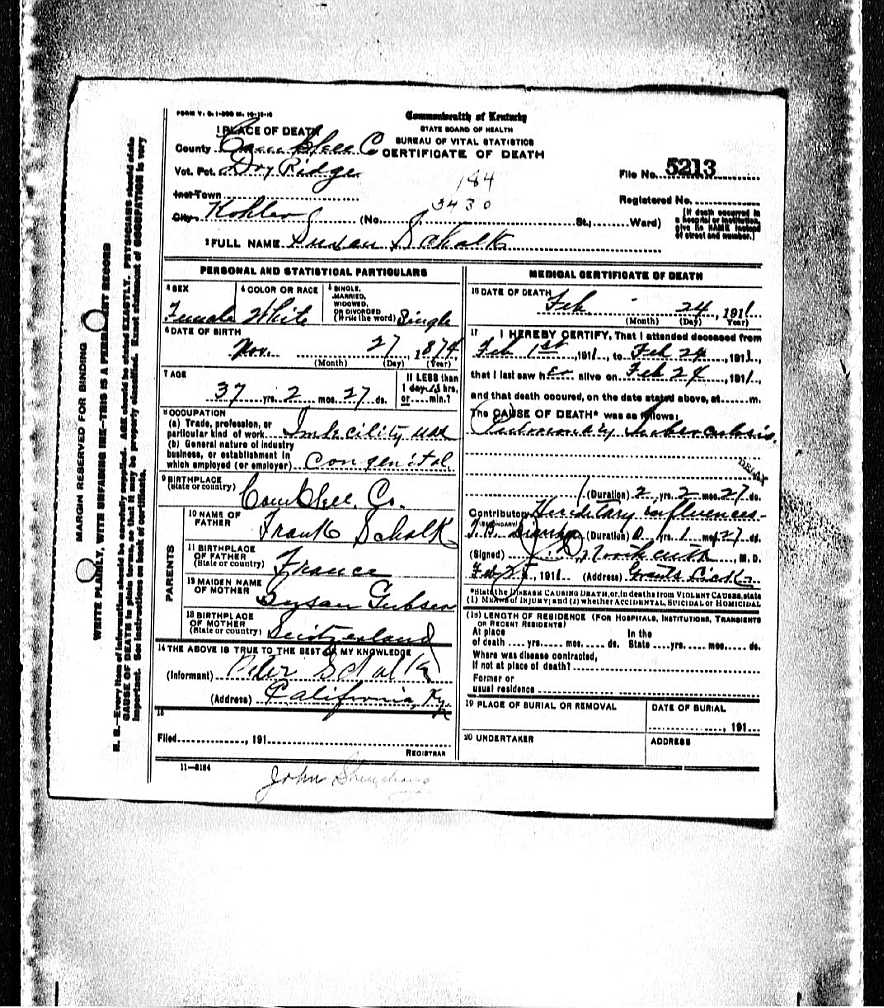 FORM V. S. 1-300 M. 10-13-10
Commonwealth of Kentucky
STATE BOARD OF HEALTH
BUREAU OF VITAL STATISTICS
CERTIFICATE OF DEATH
1 PLACE OF DEATH
County Campbell Co
Vot. Pct. Dry Ridge
Inc. Town
City Kohler (No. St., Ward)
184
3430
File No. 5213
Registered No.
[If death occurred in a hospital or institution, give its NAME instead of street and number.]
2 FULL NAME Susan Schalk
PERSONAL AND STATISTICAL PARTICULARS
3 SEX Female
4 COLOR OR RACE White
5 SINGLE, MARRIED, WIDOWED, OR DIVORCED (Write the word) Single
6 DATE OF BIRTH
Nov. 27, 1874
(Month) (Day) (Year)
7 AGE
37 yrs. 2 mos. 27 ds.
If LESS than 1 day, hrs. or min.?
8 OCCUPATION
(a) Trade, profession, or particular kind of work Imbecility was
(b) General nature of industry business, or establishment in which employed (or employer) congenital
9 BIRTHPLACE (State or country) Campbell. Co.
PARENTS
10 NAME OF FATHER Frank Schalk
11 BIRTHPLACE OF FATHER (State or country) France
12 MAIDEN NAME OF MOTHER Susan Gubser
13 BIRTHPLACE OF MOTHER (State or country) Switzerland
14 THE ABOVE IS TRUE TO THE BEST OF MY KNOWLEDGE
(Informant) Peter Schalk
(Address) California, Ky.
15
Filed , 191
REGISTRAR
11-8184
John
MEDICAL CERTIFICATE OF DEATH
16 DATE OF DEATH
Feb 24, 1911
(Month) (Day) (Year)
17 I HEREBY CERTIFY, That I attended deceased from
Feb 1st, 1911, to Feb 24, 1911,
that I last saw her alive on Feb 24, 1911,
and that death occured, on the date stated above, at m.
The CAUSE OF DEATH* was as follows:
Pulmonary Tuberculosis.
(Duration) 2 yrs. 2 mos. 27 ds.
Contributory Hereditary influences
(SECONDARY)
(Duration) 0 yrs. 1 mos. 27 ds.
(Signed) M. D.
Feb 25, 1911 (Address) Grants Lick Ky
*State the DISEASE CAUSING DEATH, or, in deaths from VIOLENT CAUSES, state
(1) MEANS of INJURY; and (2) whether ACCIDENTAL, SUICIDAL or HOMICIDAL
(18) LENGTH OF RESIDENCE (FOR HOSPITALS, INSTITUTIONS, TRANSIENTS OR RECENT RESIDENTS)
At place of death yrs. mos. ds. In the State yrs. mos. ds.
Where was disease contracted, if not at place of death?
Former or usual residence
19 PLACE OF BURIAL OR REMOVAL
DATE OF BURIAL
, 191
20 UNDERTAKER
ADDRESS
MARGIN RESERVED FOR BINDING
WRITE PLAINLY, WITH UNFADING INK—THIS IS A PERMANENT RECORD
N. B.—Every item of information should be carefully supplied. AGE should be stated EXACTLY. PHYSICIANS should state
CAUSE OF DEATH in plain terms, so that it may be properly classified. Exact statement of OCCUPATION is very
important. See instructions on back of certificate.